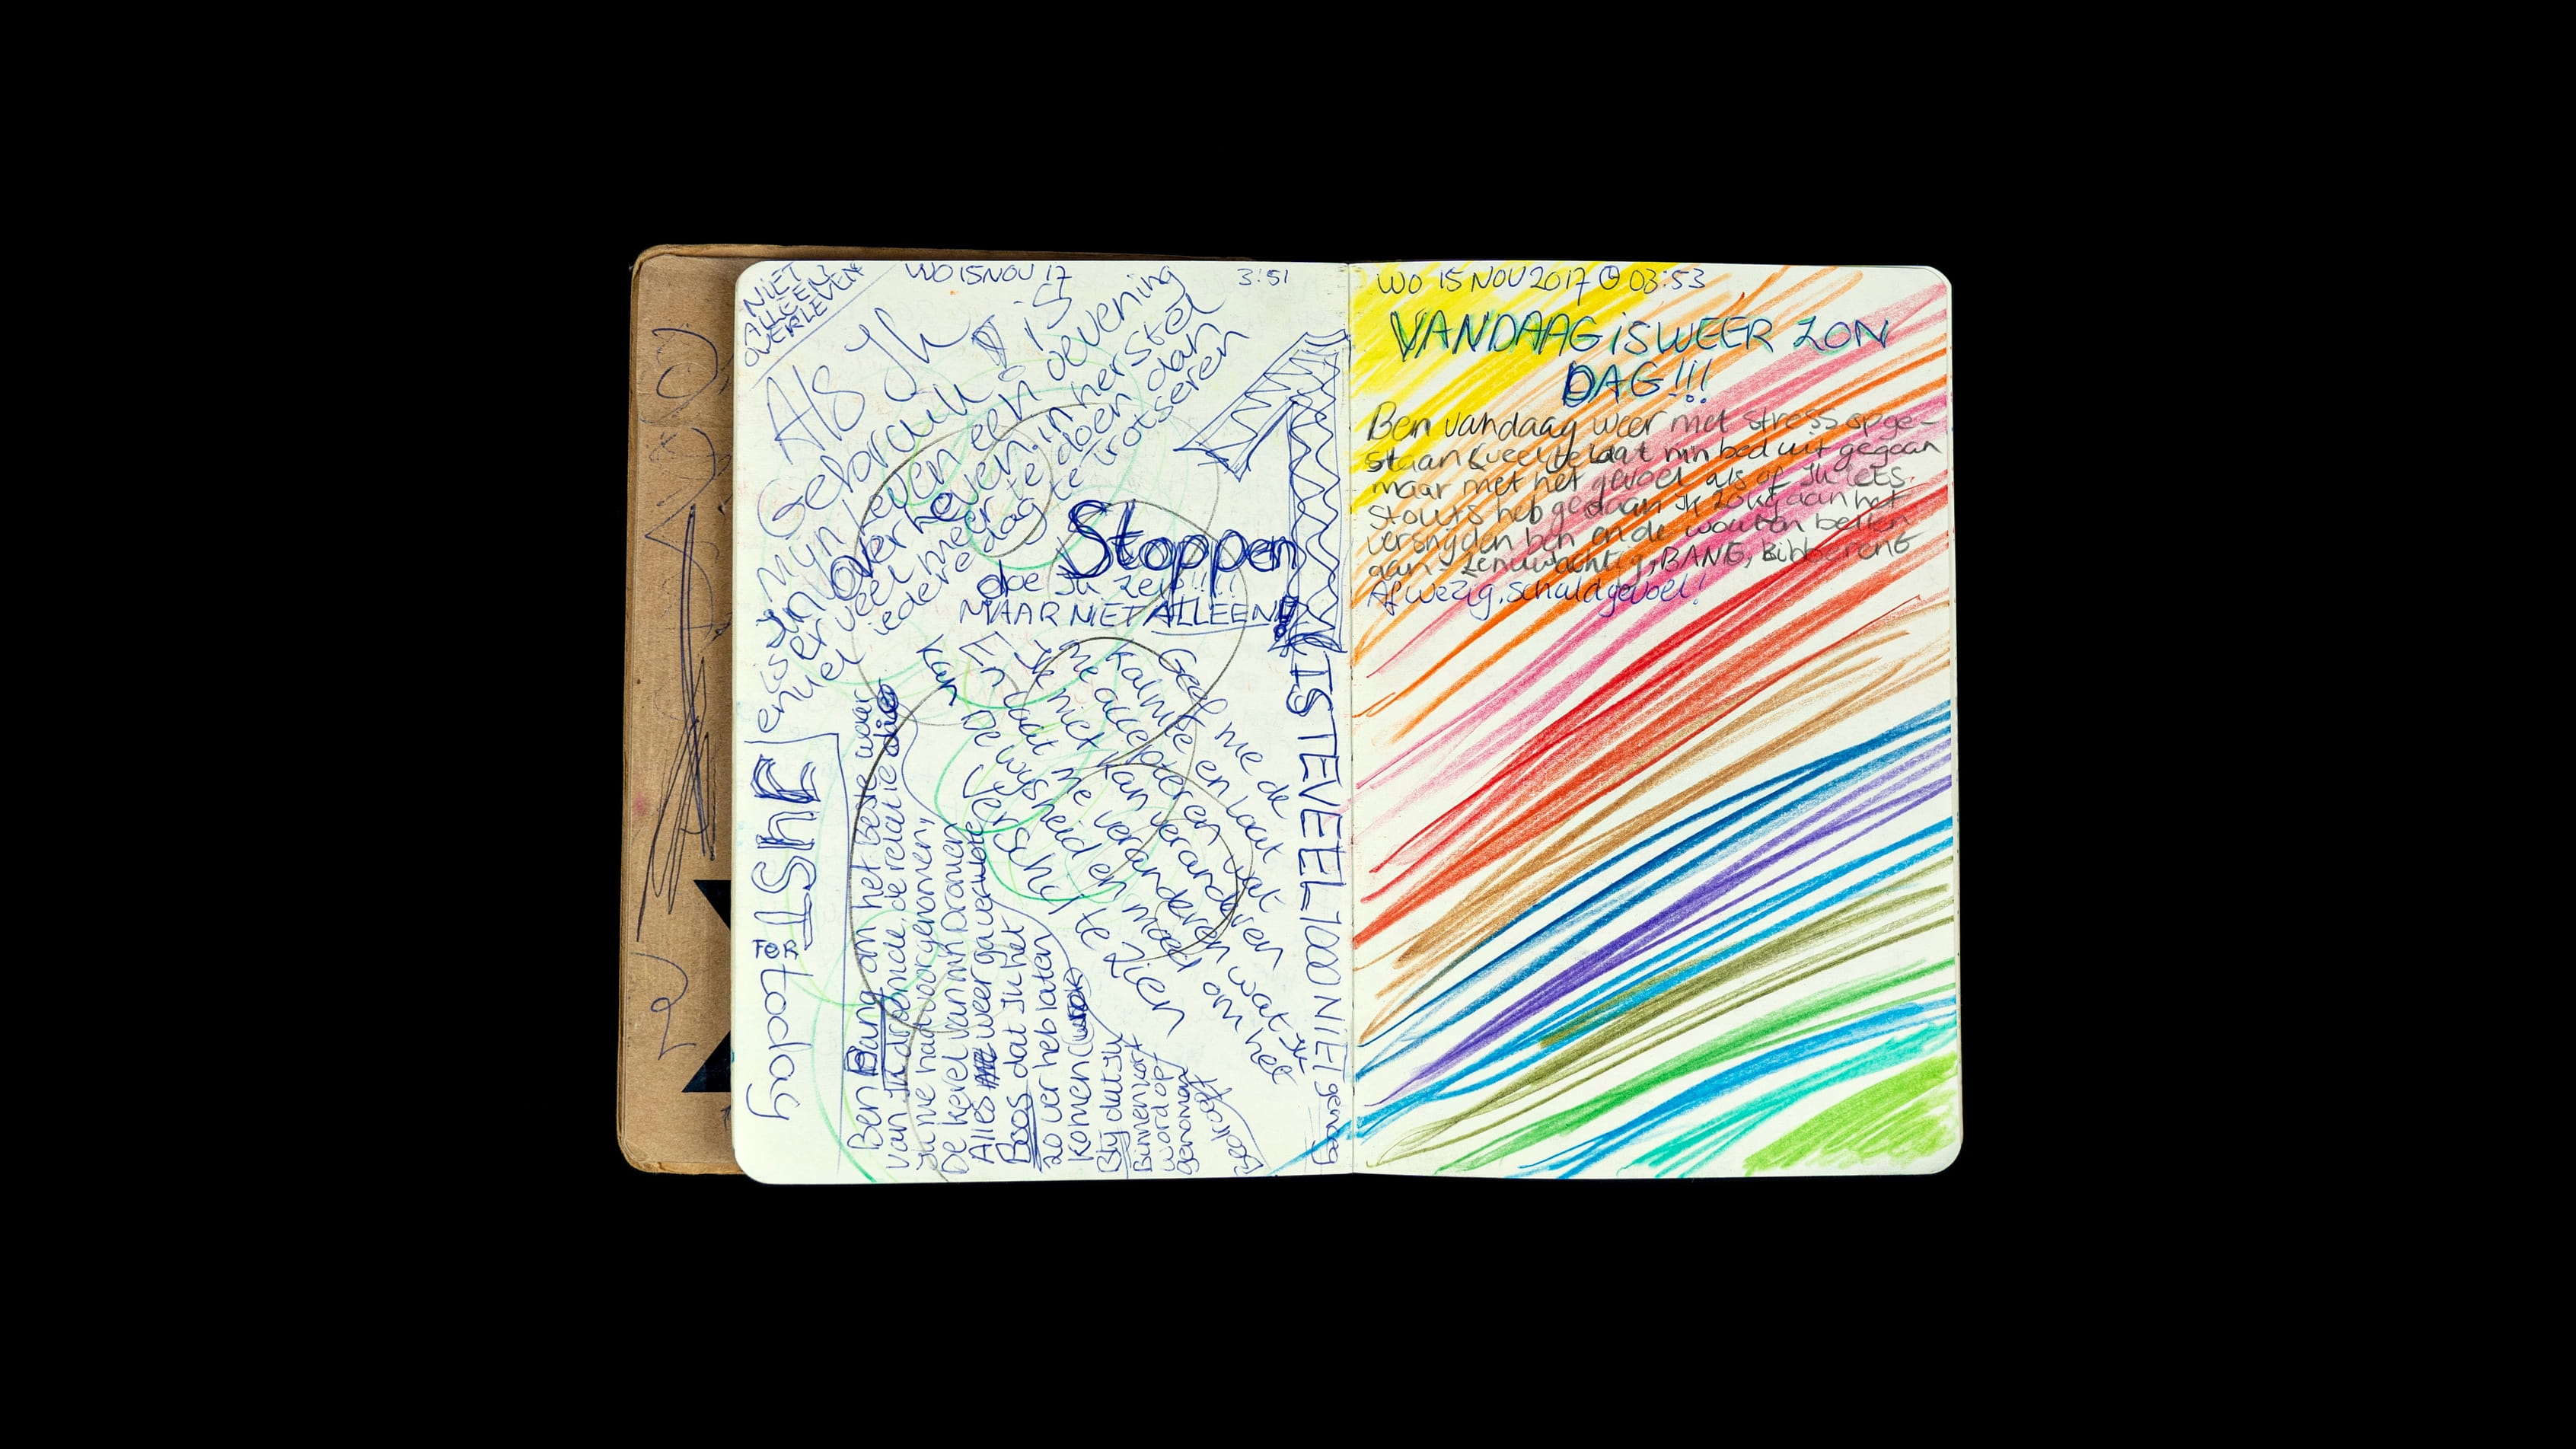 NIET
ALLEEN
OVERLEVEN
WO 15 NOV 17
3:51
Als Ik
Gebruik is
mijn leven een oevening
in overleven. in herstel
is er veel meer te doen dan
enuel iedere dag te trotseren
Stoppen
doe Ik Zelf!!!!
MAAR NIET ALLEEN!
1 IS TEVEEL 1000 NIET genoeg
Geef me de
kalmte en laat
me accepteren wat
Ik niet kan veranderen
En laat me veranderen wat Ik
kan De wijsheid en moed om het
verschil te zien
JUST
FOR
today
Ben Bang om het beste waar
van
Ik me had voorgenomen,
De kevel van mn Dromen
Alles weer ga
Boos dat Ik het
zo ver heb laten
komen
Blij dat Ik
Binnenkort
word op
genomen
WO 15 NOV 2017 03:53
VANDAAG iS WEER ZON
DAG!!!
Ben vandaag weer met stress opge-
staan & veel te laat min bed uit gegaan
maar met het gevoel als of Ik iets
stouts heb gedaan Ik aan het
versnijden ben en de wouten bellen
aan - Zenuwachtig, BANG, Bibberent
Afwezig, schuldgevoel!